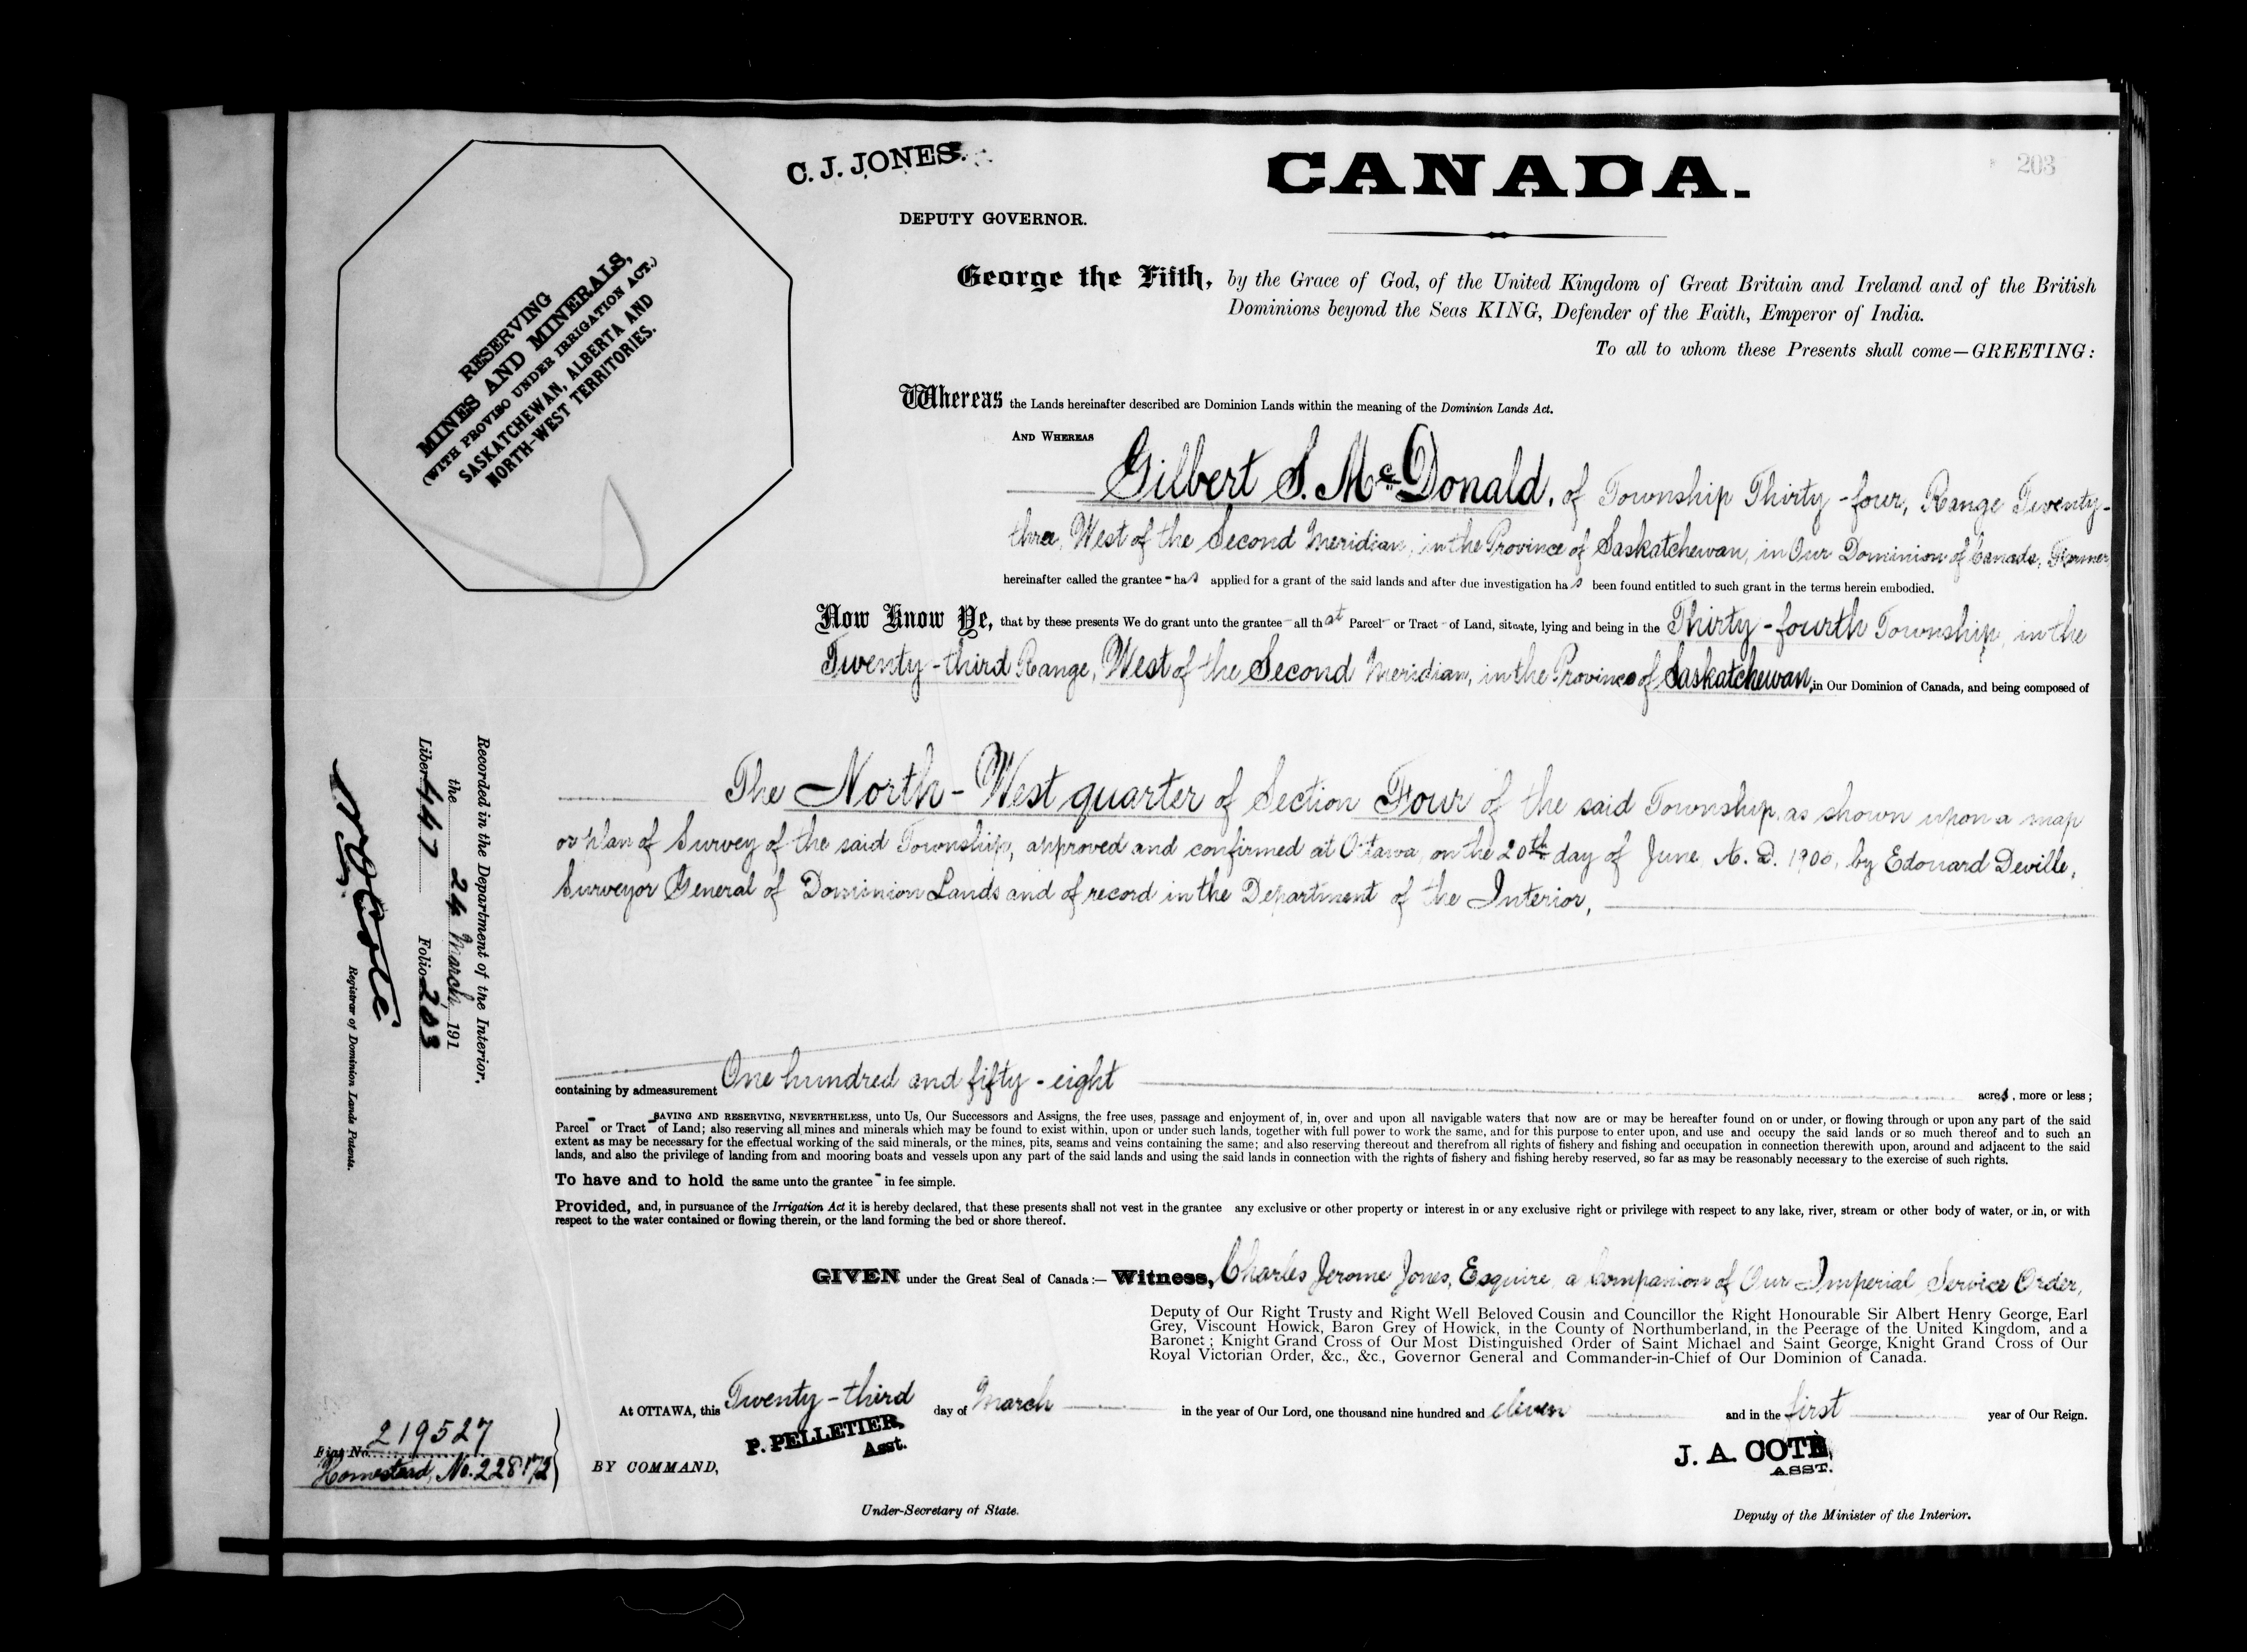 203
C. J. JONES.
DEPUTY GOVERNOR.
CANADA.
RESERVING
MINES AND MINERALS,
(WITH PROVISO UNDER IRRIGATION ACT.)
SASKATCHEWAN, ALBERTA AND
NORTH-WEST TERRITORIES.
George the Fifth, by the Grace of God, of the United Kingdom of Great Britain and Ireland and of the British
Dominions beyond the Seas KING, Defender of the Faith, Emperor of India.
To all to whom these Presents shall come—GREETING:
Whereas the Lands hereinafter described are Dominion Lands within the meaning of the Dominion Lands Act.
AND WHEREAS
Gilbert S. McDonald, of Township Thirty-four, Range Twenty-
three, West of the Second Meridian, in the Province of Saskatchewan, in Our Dominion of Canada, Farmer,
hereinafter called the grantee - has applied for a grant of the said lands and after due investigation has been found entitled to such grant in the terms herein embodied.
Now Know Ye, that by these presents We do grant unto the grantee - all that Parcel - or Tract - of Land, situate, lying and being in the Thirty-fourth Township, in the
Twenty-third Range, West of the Second Meridian, in the Province of Saskatchewan, in Our Dominion of Canada, and being composed of
The North-West quarter of Section Four of the said Township, as shown upon a map
or plan of Survey of the said Township, approved and confirmed at Ottawa, on the 20th day of June, A. D. 1900, by Edouard Deville,
Surveyor General of Dominion Lands and of record in the Department of the Interior,
containing by admeasurement One hundred and fifty-eight acres, more or less;
SAVING AND RESERVING, NEVERTHELESS, unto Us, Our Successors and Assigns, the free uses, passage and enjoyment of, in, over and upon all navigable waters that now are or may be hereafter found on or under, or flowing through or upon any part of the said
Parcel - or Tract - of Land; also reserving all mines and minerals which may be found to exist within, upon or under such lands, together with full power to work the same, and for this purpose to enter upon, and use and occupy the said lands or so much thereof and to such an
extent as may be necessary for the effectual working of the said minerals, or the mines, pits, seams and veins containing the same; and also reserving thereout and therefrom all rights of fishery and fishing and occupation in connection therewith upon, around and adjacent to the said
lands, and also the privilege of landing from and mooring boats and vessels upon any part of the said lands and using the said lands in connection with the rights of fishery and fishing hereby reserved, so far as may be reasonably necessary to the exercise of such rights.
To have and to hold the same unto the grantee - in fee simple.
Provided, and, in pursuance of the Irrigation Act it is hereby declared, that these presents shall not vest in the grantee any exclusive or other property or interest in or any exclusive right or privilege with respect to any lake, river, stream or other body of water, or in, or with
respect to the water contained or flowing therein, or the land forming the bed or shore thereof.
GIVEN under the Great Seal of Canada:— Witness, Charles Jerome Jones, Esquire, a Companion of Our Imperial Service Order,
Deputy of Our Right Trusty and Right Well Beloved Cousin and Councillor the Right Honourable Sir Albert Henry George, Earl
Grey, Viscount Howick, Baron Grey of Howick, in the County of Northumberland, in the Peerage of the United Kingdom, and a
Baronet; Knight Grand Cross of Our Most Distinguished Order of Saint Michael and Saint George, Knight Grand Cross of Our
Royal Victorian Order, &c., &c., Governor General and Commander-in-Chief of Our Dominion of Canada.
At OTTAWA, this Twenty-third day of March in the year of Our Lord, one thousand nine hundred and eleven and in the first year of Our Reign.
P. PELLETIER,
Asst.
BY COMMAND,
Under-Secretary of State.
J. A. COTE,
ASST.
Deputy of the Minister of the Interior.
Recorded in the Department of the Interior,
the 24 March, 191
Liber 447 Folio 203
Registrar of Dominion Lands Patents.
Fiat No. 219527
Homestead, No. 228172